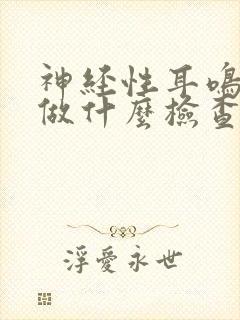 神经性耳鳴
做什麼檢查
浮愛永世